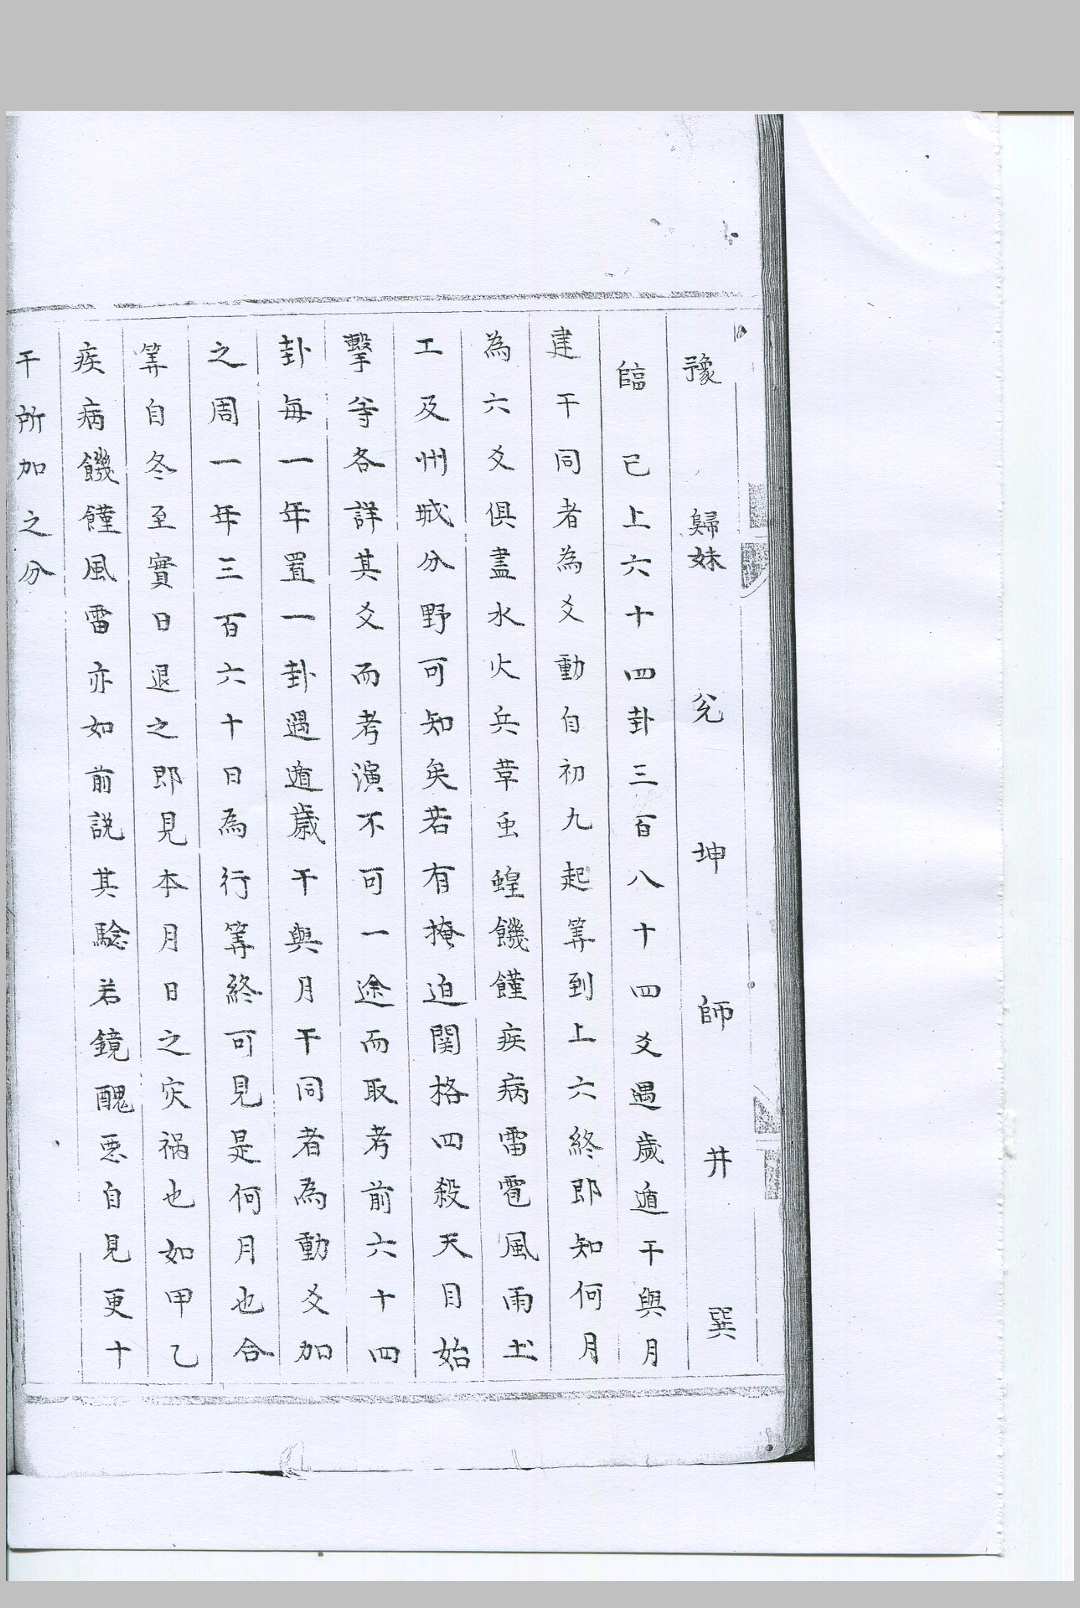 豫 歸妹 兌 坤 師 井 巽
臨 已上六十四卦三百八十四爻遇歲遁干與月
建干同者為爻動自初九起筭到上六終即知何月
為六爻俱盡水火兵革虫蝗饑饉疾病雷雹風雨土
工及州城分野可知矣若有掩迫関格四殺天目始
擊等各詳其爻而考演不可一途而取考前六十四
卦每一年置一卦遇遁歲干與月干同者為動爻加
之周一年三百六十日為行筭終可見是何月也合
筭自冬至實日退之即見本月日之灾禍也如甲乙
疾病饑饉風雷亦如前説其驗若鏡醜恶自見更十
干所加之分